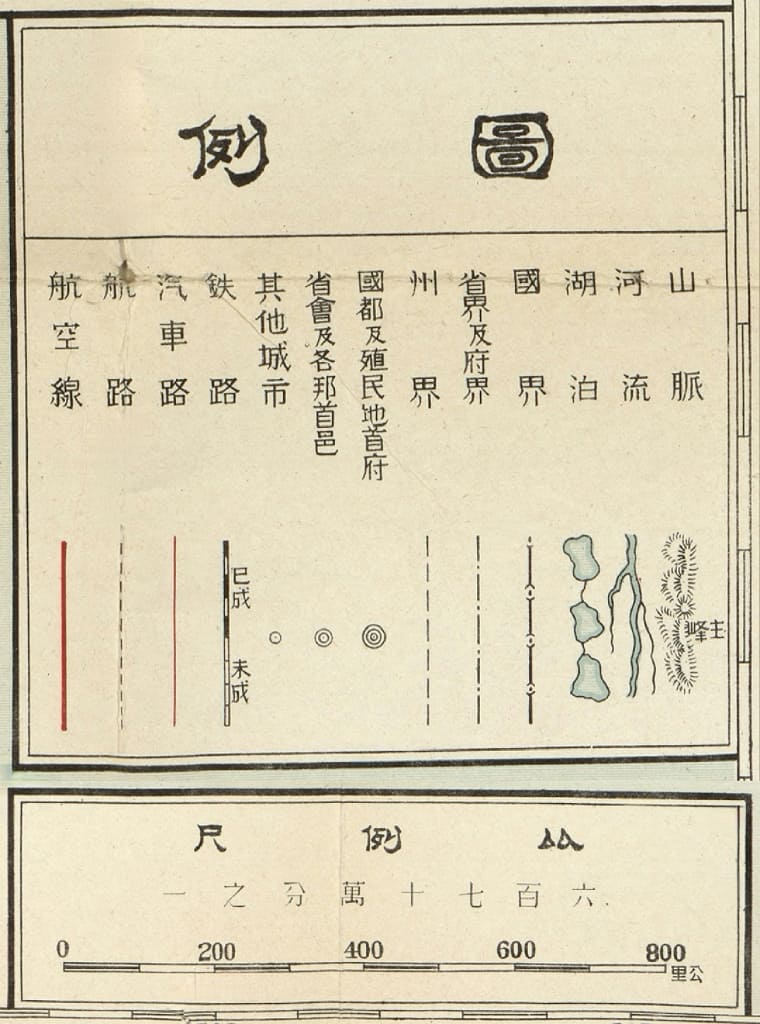 圖例
山脈
主峰
河流
湖泊
國界
省界及府界
州界
國都及殖民地首府
省會及各邦首邑
其他城市
鉄路
已成
未成
汽車路
航路
航空線
比例尺
六百七十萬分之一
0 200 400 600 800
公里